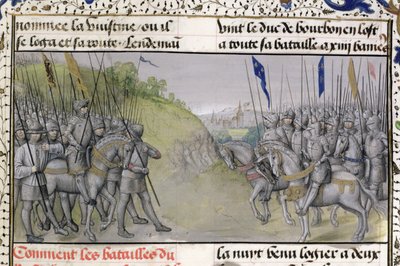 nommee la vuistme ou il
se loga et sa route. Lendemai
vint le duc de bourbon en lost
a toute sa bataille a xiiij banie
Comment les batailles du
la nuyt benu logier a deux